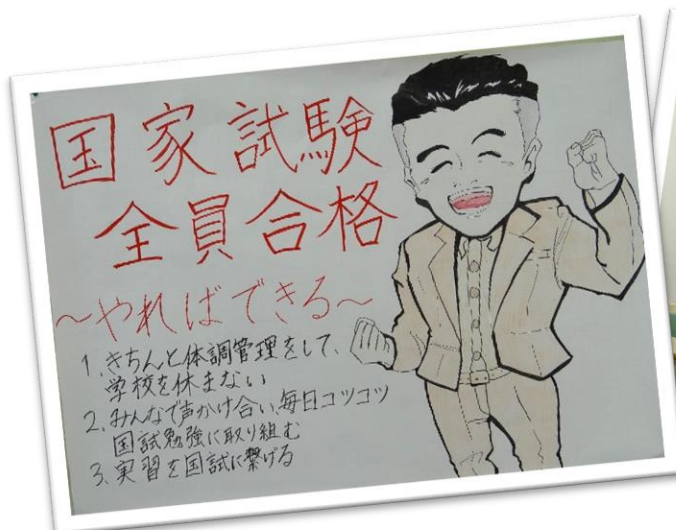 国家試験
全員合格
～やればできる～
1、きちんと体調管理をして、
学校を休まない
2、みんなで声かけ合い、毎日コツコツ
国試勉強に取り組む
3、実習を国試に繋げる